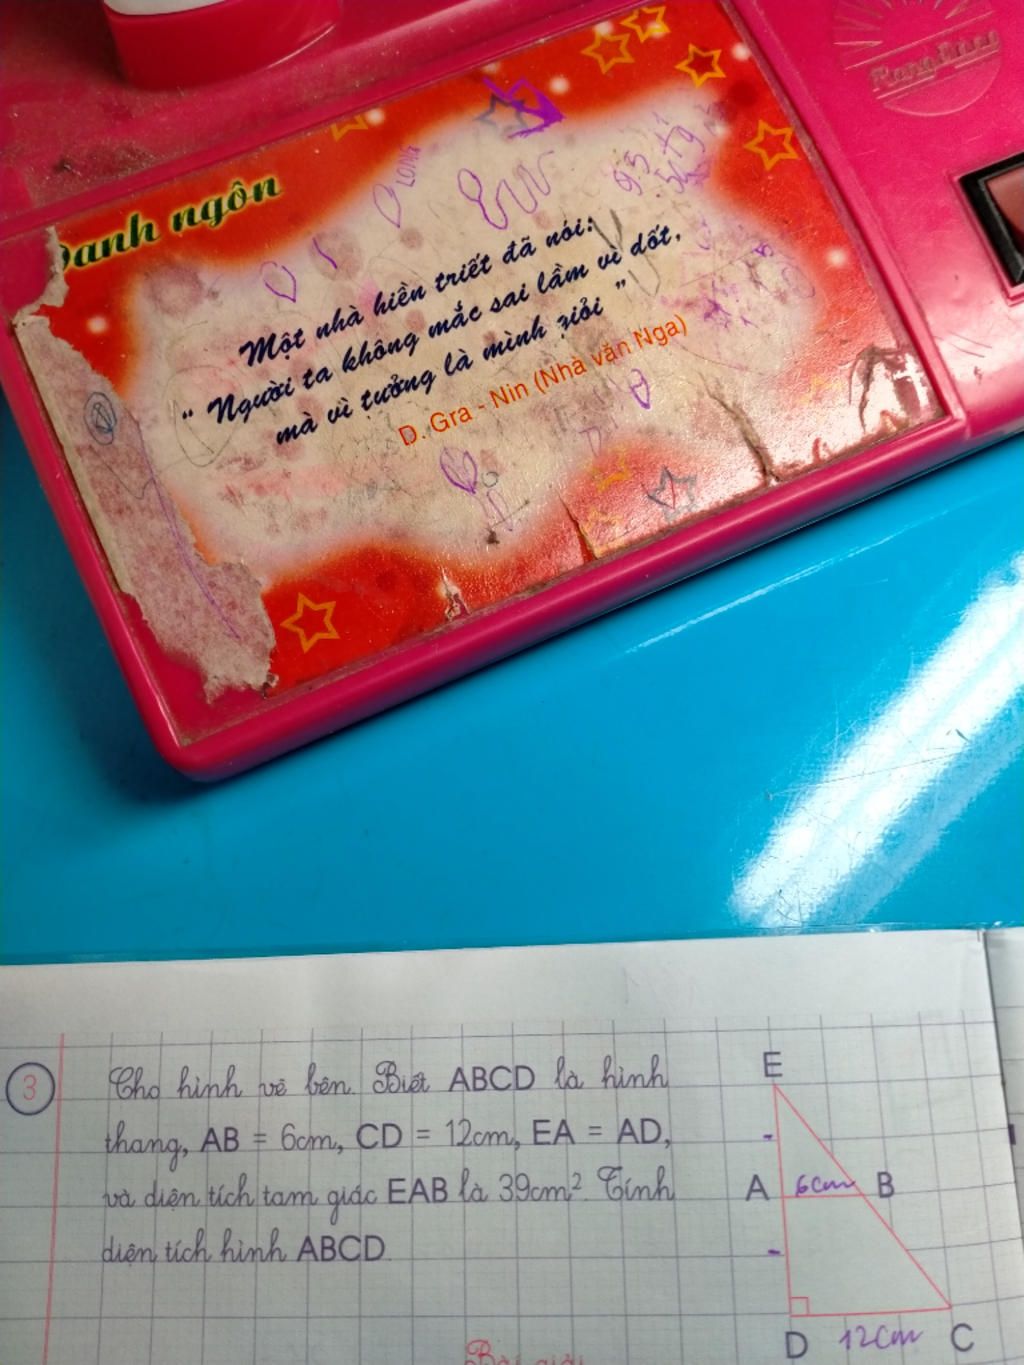 Rạng Đông
Danh ngôn
LONG
Một nhà hiền triết đã nói:
" Người ta không mắc sai lầm vì dốt,
mà vì tưởng là mình giỏi "
D. Gra - Nin (Nhà văn Nga)
3
Cho hình vẽ bên. Biết ABCD là hình
thang, AB = 6cm, CD = 12cm, EA = AD,
và diện tích tam giác EAB là 39cm². Tính
diện tích hình ABCD
E
A 6cm B
D 12cm C
Bài giải